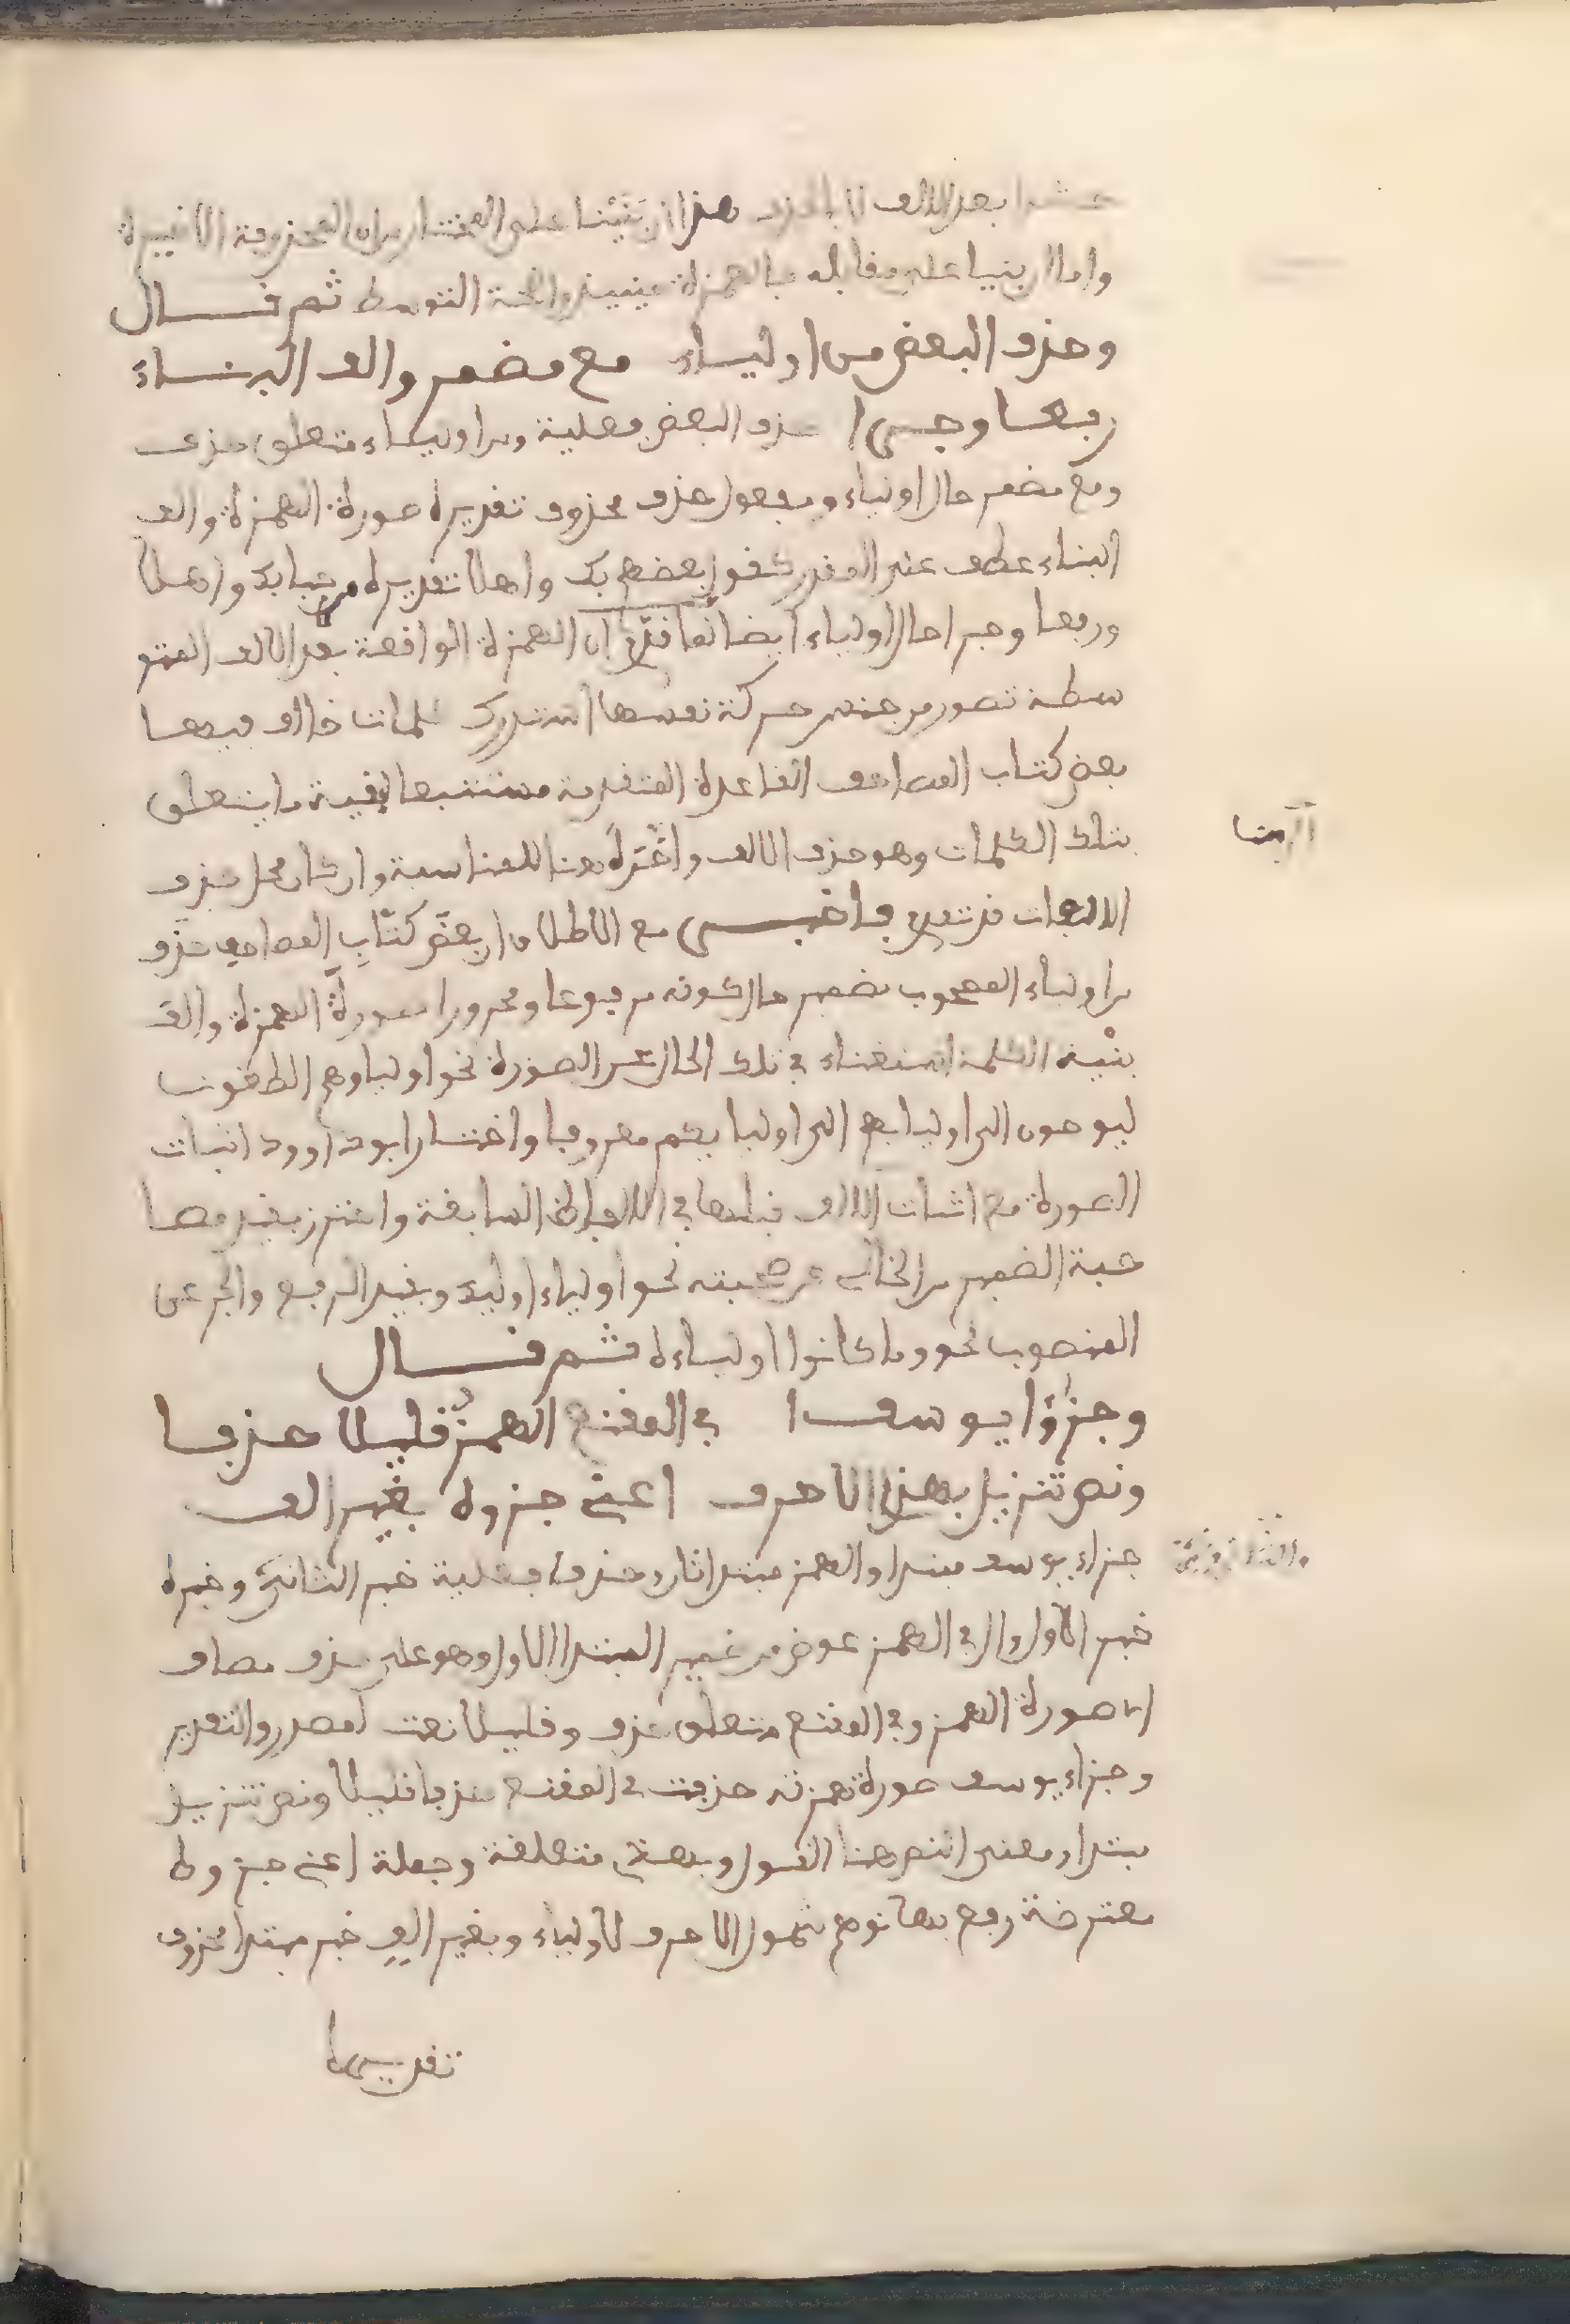 بعد الالف لا بالحذف هذا ان بنينا على المختار من ان المحذوفة الاخيرة
واما ان بنينا على مقابله فالهمزة حينئذ واضحة التوسط ثم قال
وحذف البعض من اولياء مع مضمر والف البناء
رفعا وجرا حذف البعض فعلية ومن اولياء متعلق بحذف
ومع مضمر حال اولياء ومفعول حذف محذوف تقديره صورة الهمزة والف
البناء عطف على المقدر كقول بعضهم بك واهلا تقديره مرحبا بك واهلا
ورفعا وجرا حال اولياء ايضا لما قدم ان الهمزة الواقعة بعد الالف المتو
سطة تصور من جنس حركة نفسها استدرك كلمات خالف فيها
بعض كتاب المصاحف القاعدة المتقدمة مستتبعا بقية ما يتعلق
بتلك الكلمات وهو حذف الالف واخره هنا للمناسبة وان كان محل حذف
الالفات قد تقدم فاخبر مع الاطلاق ان بعض كتاب المصاحف حذف
من اولياء المصحوب بضمير حال كونه مرفوعا ومجرورا صورة الهمزة والف
بنية الكلمة استغناء في تلك الحال عن الصورة نحو اولياوهم الطغوت
ليوحون الى اوليايهم الى اوليايكم معروفا واختار ابو داوود اثبات
الصورة مع اثبات الالف قبلها في الالفاظ السابقة واحترز بقيد مصا
حبة الضمير من الخالي عن صحبته نحو اولياء اوليك وبقيد الرفع والجر عن
المنصوب نحو وما كانوا اولياءه ثم قال
وجزؤا يوسف في المقنع الهمز قليلا حذفا
ونص تنزيل بهذا الاحرف اعني جزوه بغير الف
جزاء يوسف مبتدا والهمز مبتدا ثان وحذفا فعلية خبر الثاني وخبره
خبر الاول وال في الهمز عوض من ضمير المبتدا الاول وهو على حذف مضاف
اى صورة الهمز وفي المقنع متعلق بحذف وقليلا نعت لمصدر والتقدير
وجزاء يوسف صورة همزته حذفت في المقنع حذفا قليلا ونص تنزيل
مبتدا ومعنى النص هنا القول وبهذي متعلقة وجملة اعني جزوه
معترضة رفع بها توهم شمول الاحرف لاولياء وبغير الف خبر مبتدا محذوف
تقديره